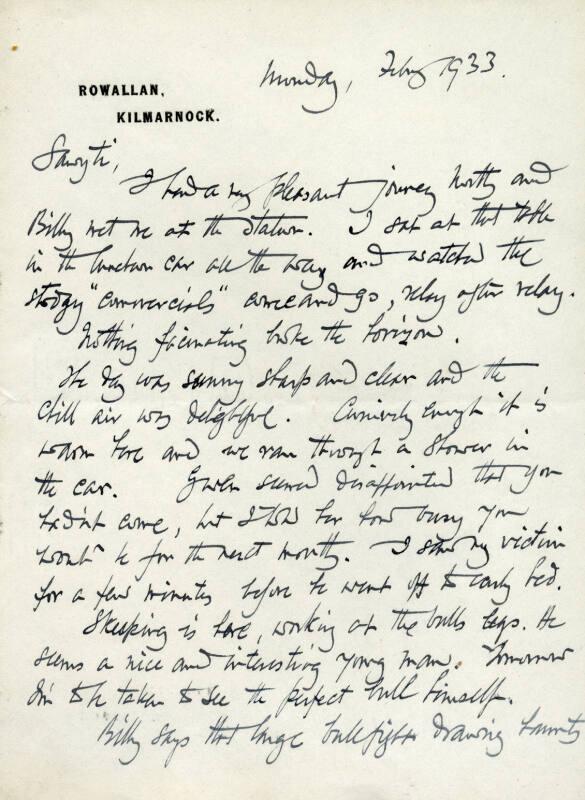 Monday, Feby 1933.
ROWALLAN,
KILMARNOCK.
I had a very pleasant journey North and
Billy met me at the Station. I sat at that table
in the luncheon car all the way and watched the
stodgy "commercials" come and go, relay after relay.
Nothing facinating broke the horizon.
The day was sunny sharp and clear and the
chill air was delightful. Curiously enough it is
warm here and we ran through a shower in
the car. Gwen seemed disappointed that you
hadn't come, but I told her how busy you
would be for the next month. I saw my victim
for a few minutes before he went off to early bed.
Skeaping is here, working at the bulls legs. He
seems a nice and interesting young man. Tomorrow
I'm to be taken to see the perfect bull himself.
Billy says that large bullfight drawing haunts